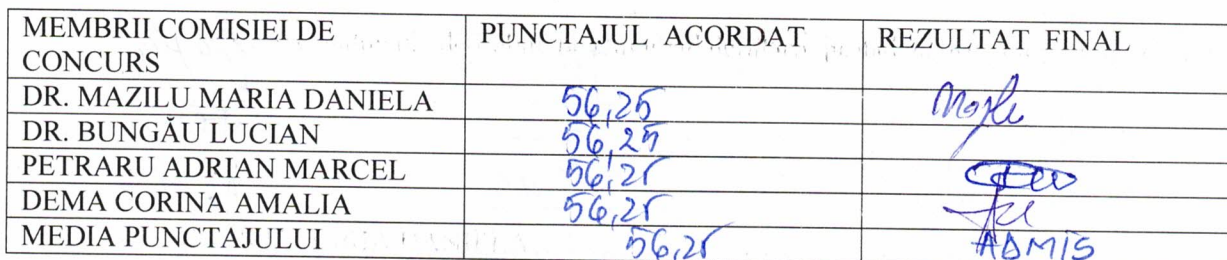 MEMBRII COMISIEI DE CONCURS PUNCTAJUL ACORDAT REZULTAT FINAL
DR. MAZILU MARIA DANIELA 56,25
DR. BUNGĂU LUCIAN 56,25
PETRARU ADRIAN MARCEL 56,25
DEMA CORINA AMALIA 56,25
MEDIA PUNCTAJULUI 56,25 ADMIS